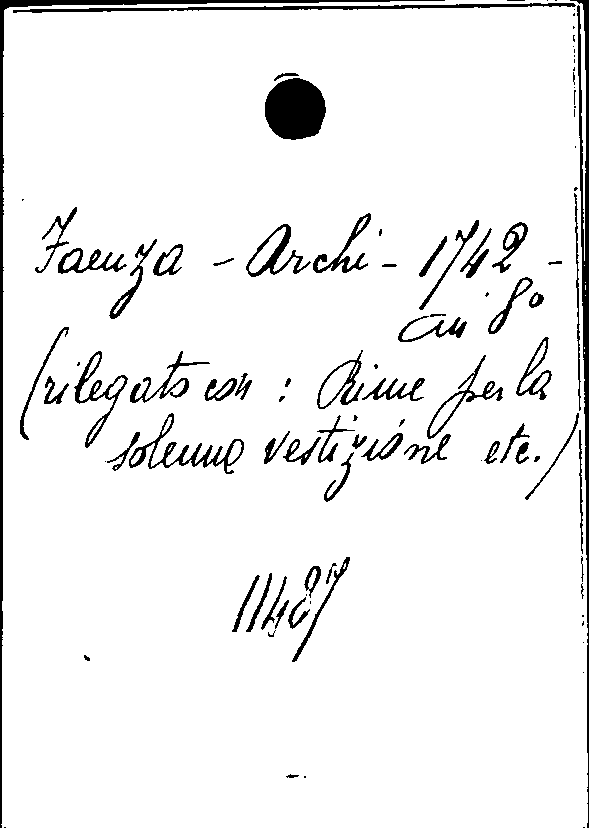 Faenza - Archi - 1742 -
in 8°
(rilegato con : Rime per la
solenne vestizione etc.)
11487